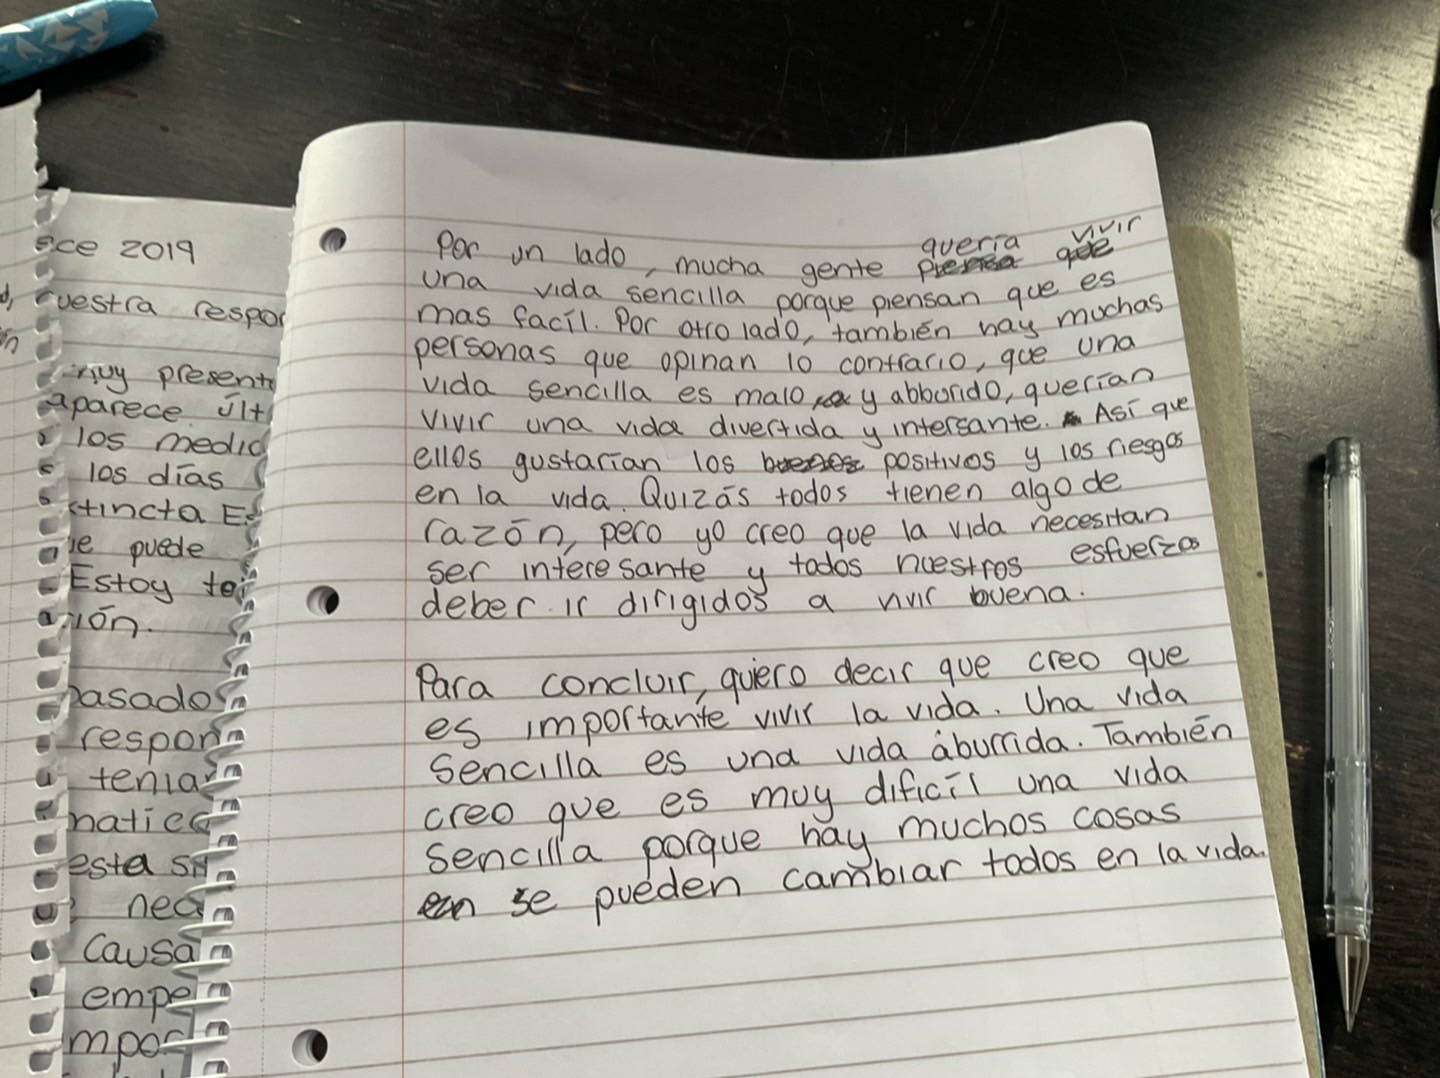 ece 2019
nuestra respon
muy present
aparece últ
los medic
los días
stincta Es
ue puede
Estoy te
ión.
pasados
respon
tenia
matica
esta
nec
causa
empe
mpo
Por un lado, mucha gente quería vivir
una vida sencilla porque piensan que es
mas facíl. Por otro lado, también hay muchas
personas que opinan lo contrario, que una
vida sencilla es malo y abburido, querían
vivir una vida divertida y intersante. Así que
ellos gustarían los positivos y los riesgos
en la vida. Quizás todos tienen algo de
razón, pero yo creo que la vida necesitan
ser interesante y todos nuestros esfuerzos
deber ir dirigidos a vivir buena.
Para concluir, quiero decir que creo que
es importante vivir la vida. Una vida
sencilla es una vida áburrida. También
creo que es muy dificíl una vida
sencilla porque hay muchos cosas
se pueden cambiar todos en la vida.